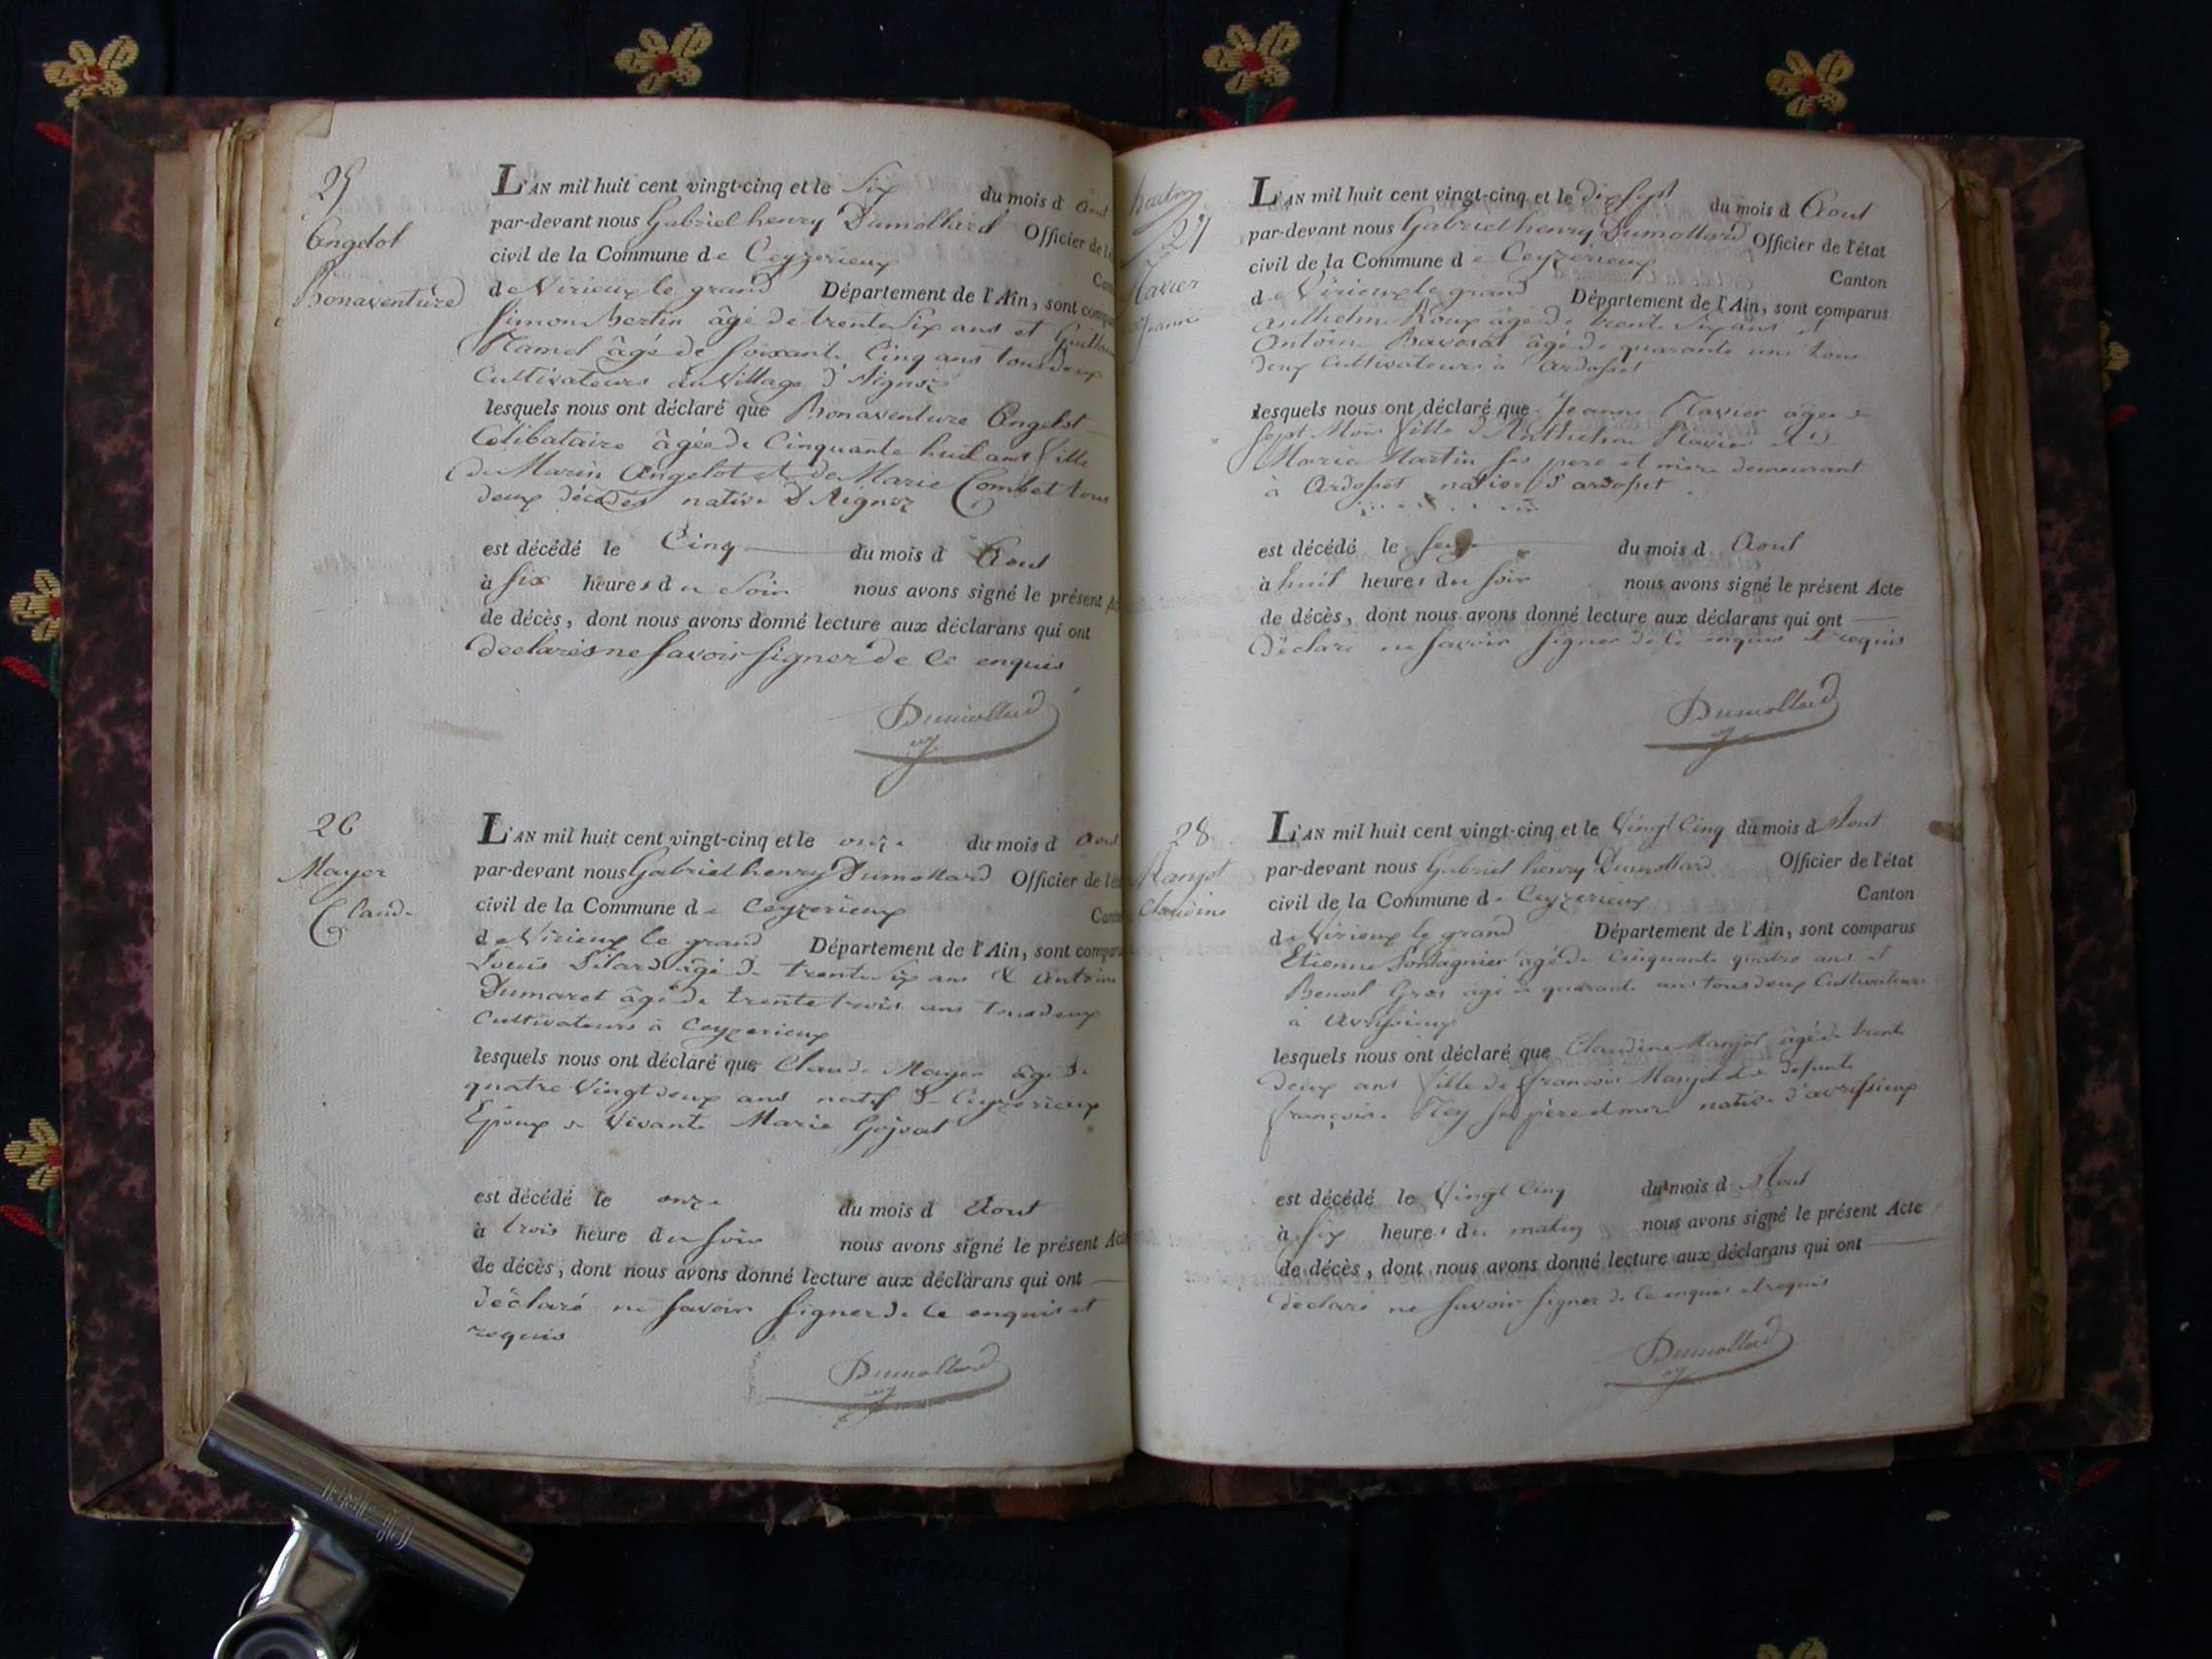 25
Angelot
Bonaventure
L'AN mil huit cent vingt-cinq et le Six du mois d Aout
par-devant nous Gabriel henry Dumollard Officier de l'
civil de la Commune de Ceyzerieux
de Virieux le grand Département de l'Ain, sont
Simon Bertin âgé de trente Six ans et
âgé de soixante Cinq ans tous deux
Cultivateurs au Village d'Aignoz
lesquels nous ont déclaré que Bonaventure Angelot
Célibataire âgée de Cinquante huit ans fille
de Marin Angelot et de Marie Combet tous
deux décédés native d'Aignoz
est décédé le Cinq du mois d Aout
à Six heures du Soir nous avons signé le présent
de décès, dont nous avons donné lecture aux déclarans qui ont
déclarés ne Savoir Signer de Ce enquis
Dumollard
26
Mayer
Claude
L'AN mil huit cent vingt-cinq et le onze du mois d Aout
par-devant nous Gabriel henry Dumollard Officier de
civil de la Commune de Ceyzerieux
de Virieux le grand Département de l'Ain, sont
Louis Pilard âgé de trente Six ans & Antoine
Dumaret âgé de trente trois ans tous deux
Cultivateurs à Ceyzerieux
lesquels nous ont déclaré que Claude Mayer âgé de
quatre Vingt deux ans natif de Ceyzerieux
Epoux de Vivante Marie Gojoat
est décédé le onze du mois d Aout
à trois heure du Soir nous avons signé le présent
de décès, dont nous avons donné lecture aux déclarans qui ont
déclaré ne Savoir Signer de Ce enquis et
requis
Dumollard
27
L'AN mil huit cent vingt-cinq et le dix Sept du mois d Aout
par-devant nous Gabriel henry Dumollard Officier de l'état
civil de la Commune de Ceyzerieux Canton
de Virieux le grand Département de l'Ain, sont comparus
Anthelme Roux âgé de trente Six ans et
Antoine Bavorat âgé de quarante ans tous
deux Cultivateurs à Ardosset
lesquels nous ont déclaré que Jeanne Navier âgée de
Sept Mois fille d'Anthelme Navier et de
Marie Martin Ses pere et mère demeurant
à Ardosset native d'ardosset
est décédé le du mois d Aout
à huit heures du Soir nous avons signé le présent Acte
de décès, dont nous avons donné lecture aux déclarans qui ont
Déclaré ne Savoir Signer de Ce enquis et requis
Dumollard
28
Manjot
Claudine
L'AN mil huit cent vingt-cinq et le Vingt Cinq du mois d Aout
par-devant nous Gabriel henry Dumollard Officier de l'état
civil de la Commune de Ceyzerieux Canton
de Virieux le grand Département de l'Ain, sont comparus
Etienne âgé de Cinquante quatre ans et
Benoit Gros âgé de quarante ans tous deux Cultivateurs
à Avrissieux
lesquels nous ont déclaré que Claudine Manjot âgé de trente
deux ans fille de françois Manjot & de defunte
françoise Ney Ses père et mere native d'avrissieux
est décédé le Vingt Cinq du mois d Aout
à Six heures du matin nous avons signé le présent Acte
de décès, dont nous avons donné lecture aux déclarans qui ont
déclaré ne Savoir Signer de Ce enquis et requis
Dumollard